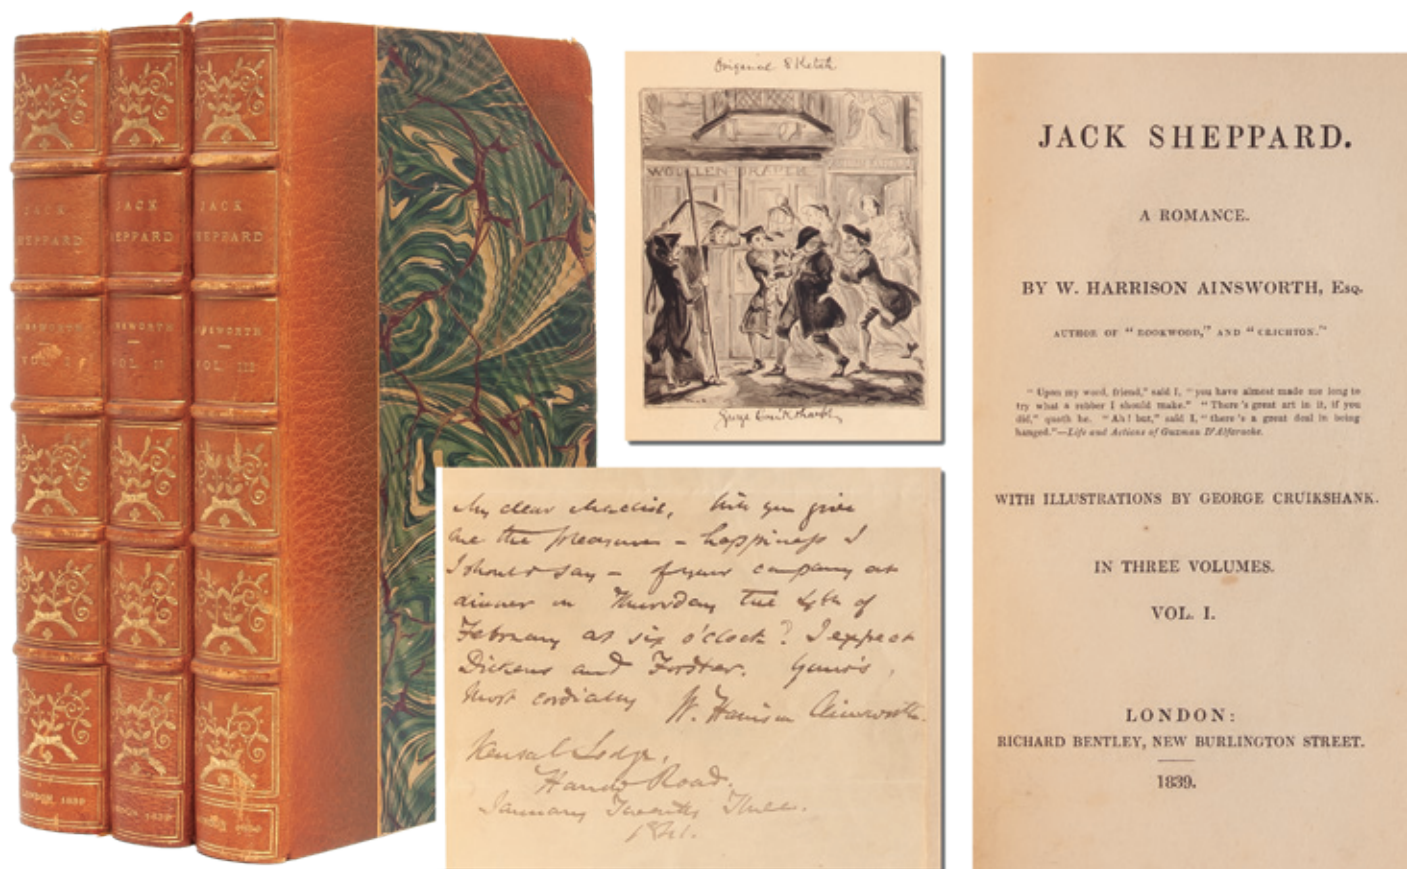 JACK
SHEPPARD
VOL
LONDON 1839
JACK
SHEPPARD
AINSWORTH
VOL II
LONDON 1839
JACK
SHEPPARD
AINSWORTH
VOL III
LONDON 1839
Original Sketch
WOOLLEN DRAPER
George Cruikshank
My dear Maclise, Will you give
me the pleasure – happiness I
should say – of your company at
dinner on Thursday the 4th of
February at six o'clock? I expect
Dickens and Forster. Yours
most cordially W. Harrison Ainsworth.
Kensal Lodge,
Harrow Road.
January Twenty Three.
1841.
JACK SHEPPARD.
A ROMANCE.
BY W. HARRISON AINSWORTH, Esq.
AUTHOR OF "ROOKWOOD," AND "CRICHTON."
"Upon my word, friend," said I, "you have almost made me long to
try what a robber I should make." "There's great art in it, if you
did," quoth he. "Ah! but," said I, "there's a great deal in being
hanged."—Life and Actions of Guzman D'Alfarache.
WITH ILLUSTRATIONS BY GEORGE CRUIKSHANK.
IN THREE VOLUMES.
VOL. I.
LONDON:
RICHARD BENTLEY, NEW BURLINGTON STREET.
1839.